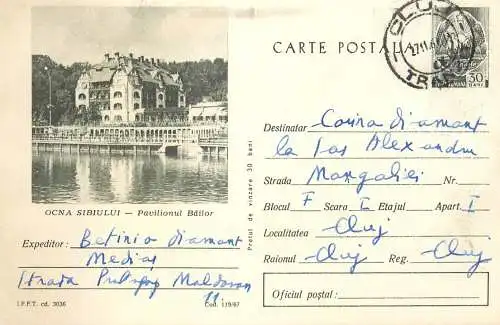 CARTE POSTALĂ
CLUJ
30
BANI
OCNA SIBIULUI — Pavilionul Băilor
Expeditor: Betinia diamant
Mediaș
Strada Moldovan
11.
I.P.F.T. cd. 3036
Cod. 119/67
Prețul de vinzare 30 bani
Destinatar Corina diamant
la Pas Alexandru
Strada Mangaliei Nr.
Blocul F Scara I Etajul Apart. I
Localitatea Cluj
Raionul Cluj Reg. Cluj
Oficiul poștal: